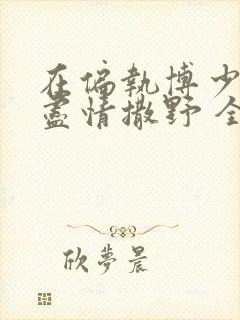 在偏執博少
盡情撒野 全
欣夢晨